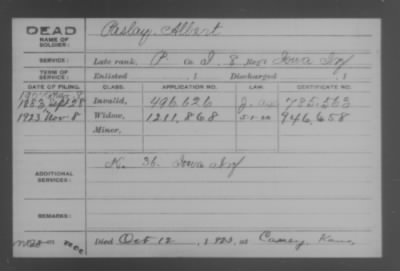 DEAD
NAME OF SOLDIER:
Paslay, Albert
SERVICE: Late rank, P. Co. I, 8 Reg't Iowa Inf
TERM OF SERVICE: Enlisted , 1 Discharged , 1
DATE OF FILING. CLASS. APPLICATION NO. LAW. CERTIFICATE NO.
Invalid, 496,626 785,563
1923 Nov 8 Widow, 1211,868 946,658
Minor,
ADDITIONAL SERVICES: K. 36. Iowa Inf
REMARKS:
Died Oct 12, 1923, at Caney, Kans,